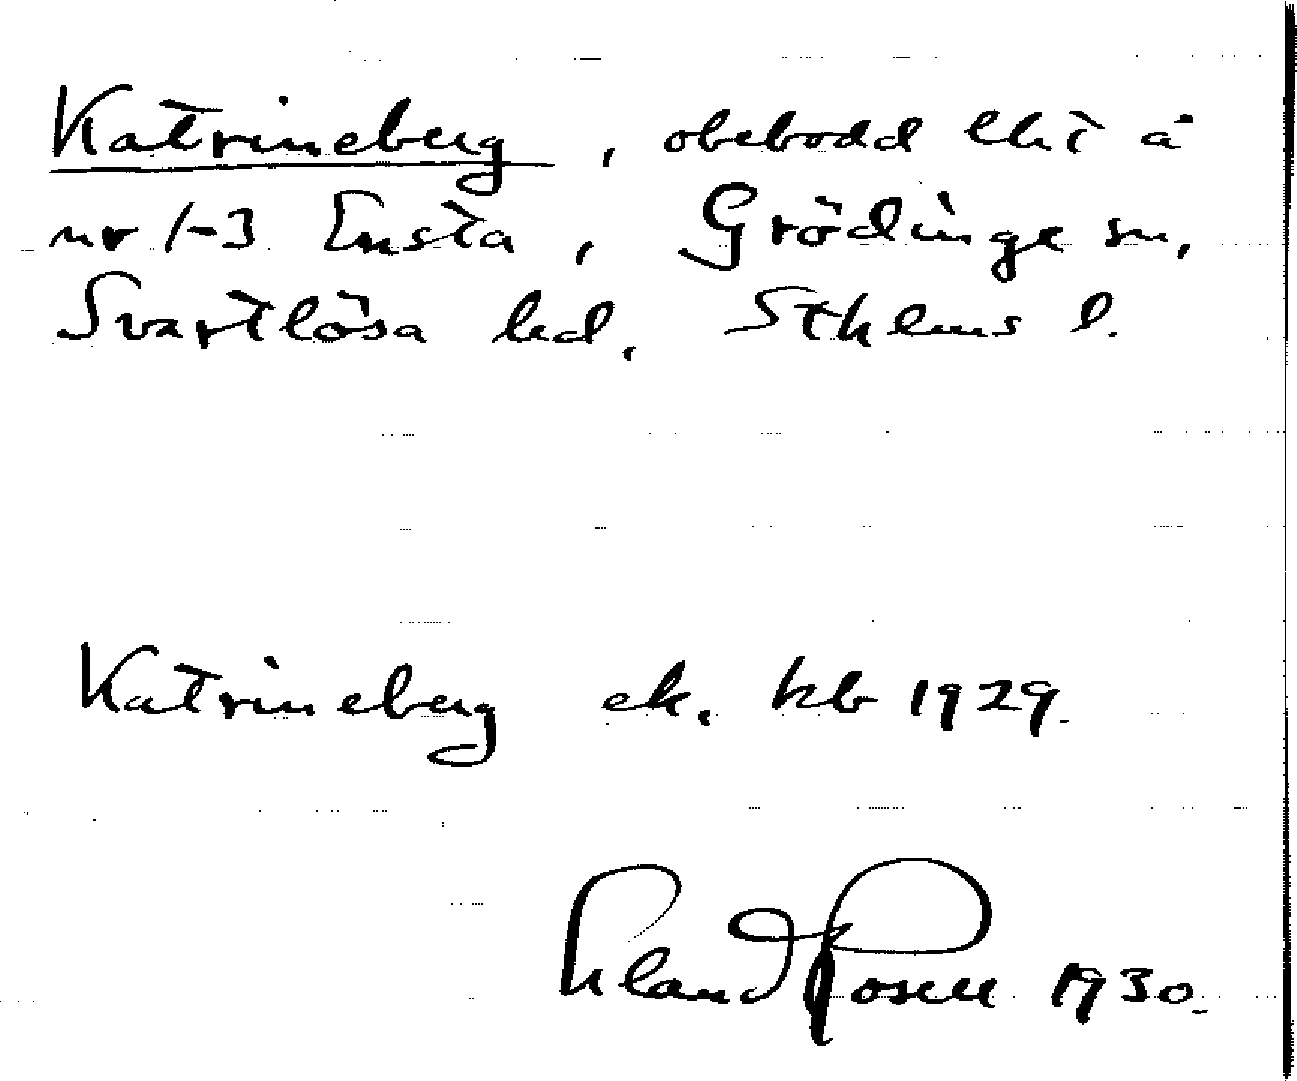 Katrineberg, obebodd lht å
nr 1-3 Ensta, Grödinge sn,
Svartlösa hd, Sthlms l.
Katrineberg ek. kb 1929.
Erland Rosell 1930.